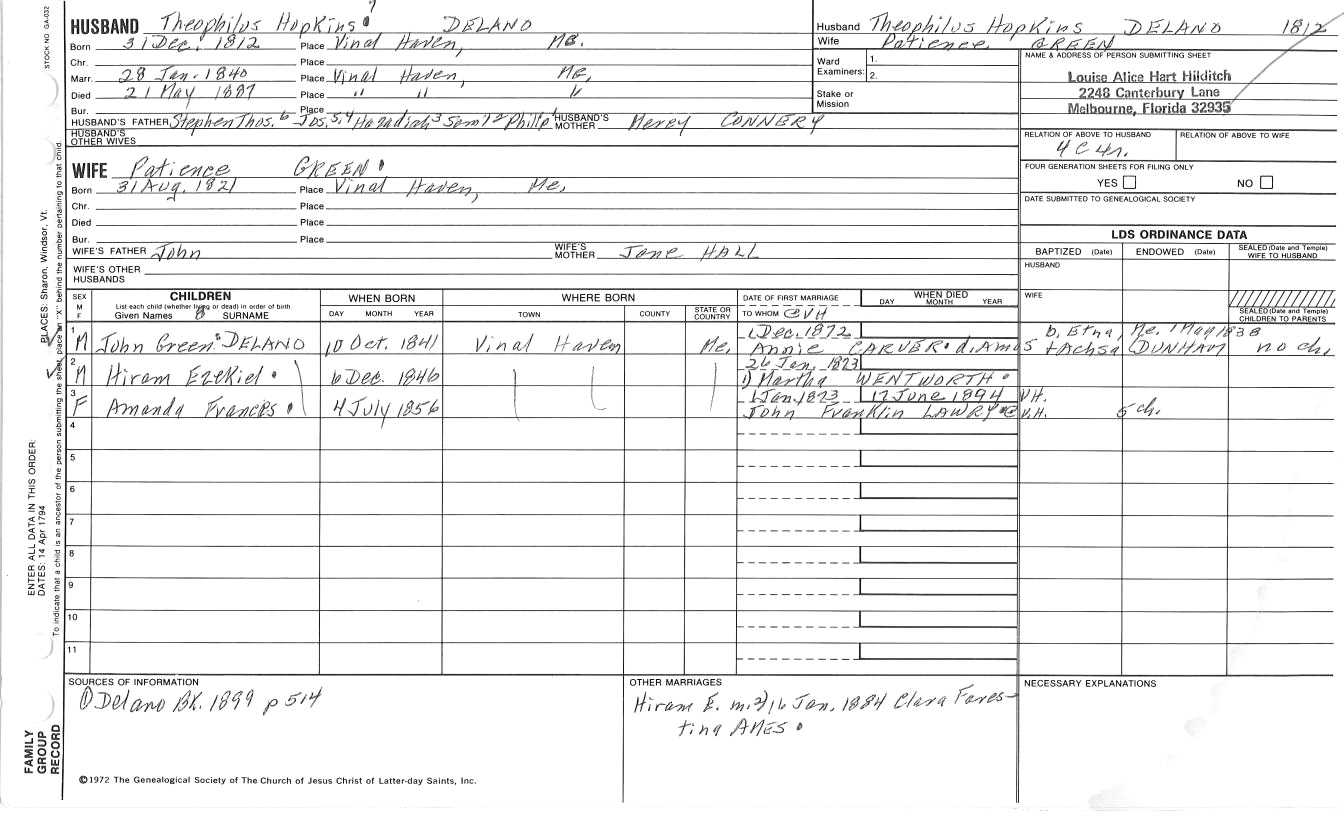 STOCK NO GA-032
HUSBAND Theophilus Hopkins 7 DELANO
Born 31 Dec. 1812 Place Vinal Haven, Me.
Chr. Place
Marr. 28 Jan. 1840 Place Vinal Haven, Me,
Died 21 May 1887 Place " " "
Bur. Place
HUSBAND'S FATHER Stephen Thos. 6 Jos. 5,4 Hazadiah 3 Saml 2 Philip 1 HUSBAND'S MOTHER Mercy CONNERY
HUSBAND'S OTHER WIVES
WIFE Patience GREEN
Born 31 Aug. 1821 Place Vinal Haven, Me,
Chr. Place
Died Place
Bur. Place
WIFE'S FATHER John WIFE'S MOTHER Jane HALL
WIFE'S OTHER HUSBANDS
Husband Theophilus Hopkins DELANO 1812
Wife Patience GREEN
Ward 1.
Examiners: 2.
Stake or Mission
NAME & ADDRESS OF PERSON SUBMITTING SHEET
Louise Alice Hart Hilditch
2248 Canterbury Lane
Melbourne, Florida 32935
RELATION OF ABOVE TO HUSBAND RELATION OF ABOVE TO WIFE
4C4r.
FOUR GENERATION SHEETS FOR FILING ONLY
YES NO
DATE SUBMITTED TO GENEALOGICAL SOCIETY
LDS ORDINANCE DATA
BAPTIZED (Date) ENDOWED (Date) SEALED (Date and Temple) WIFE TO HUSBAND
HUSBAND
WIFE
SEALED (Date and Temple) CHILDREN TO PARENTS
SEX M F CHILDREN WHEN BORN WHERE BORN DATE OF FIRST MARRIAGE WHEN DIED
List each child (whether living or dead) in order of birth DAY MONTH YEAR
Given Names 8 SURNAME DAY MONTH YEAR TOWN COUNTY STATE OR COUNTRY TO WHOM @VH
1 1 Dec. 1872 b. Etna, Me. 1 May 1838
M John Green DELANO 10 Oct. 1841 Vinal Haven Me, Annie CARVER d. Amos + Achsa DUNHAM no ch.
2 26 Jan, 1873
M Hiram Ezekiel 6 Dec. 1846 1) Martha WENTWORTH
3 1 Jan. 1873 17 June 1894 V.H.
F Amanda Frances 4 July 1856 John Franklin LAWRY @ V.H. 5 ch.
4
5
6
7
8
9
10
11
SOURCES OF INFORMATION
① Delano BK. 1899 p 514
OTHER MARRIAGES
Hiram E. m. 2) 16 Jan, 1884 Clara Fores-
tina AMES
NECESSARY EXPLANATIONS
©1972 The Genealogical Society of The Church of Jesus Christ of Latter-day Saints, Inc.
FAMILY
GROUP
RECORD
ENTER ALL DATA IN THIS ORDER:
DATES: 14 Apr 1794
PLACES: Sharon, Windsor, Vt.
To indicate that a child is an ancestor of the person submitting the sheet, place an "X" behind the number pertaining to that child.